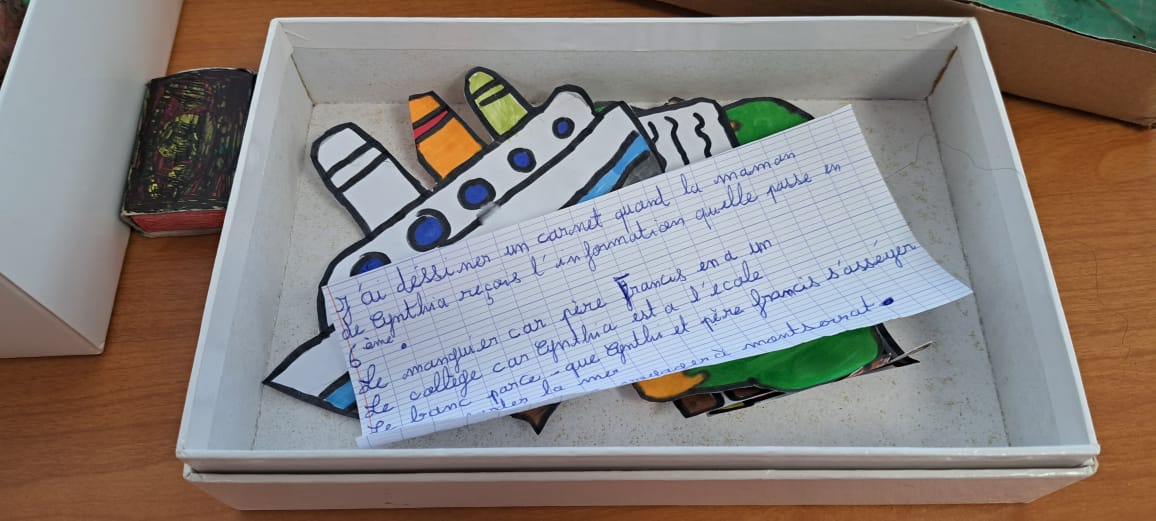 J'ai déssiner un carnet quand la maman
de Cynthia reçois l'information quelle passe en
6ème.
Le manguier car père Francis en a un
Le collège car Cynthia est a l'école
Le banc parce-que Cynthi et père francis s'asséyer
la mer montserrat.